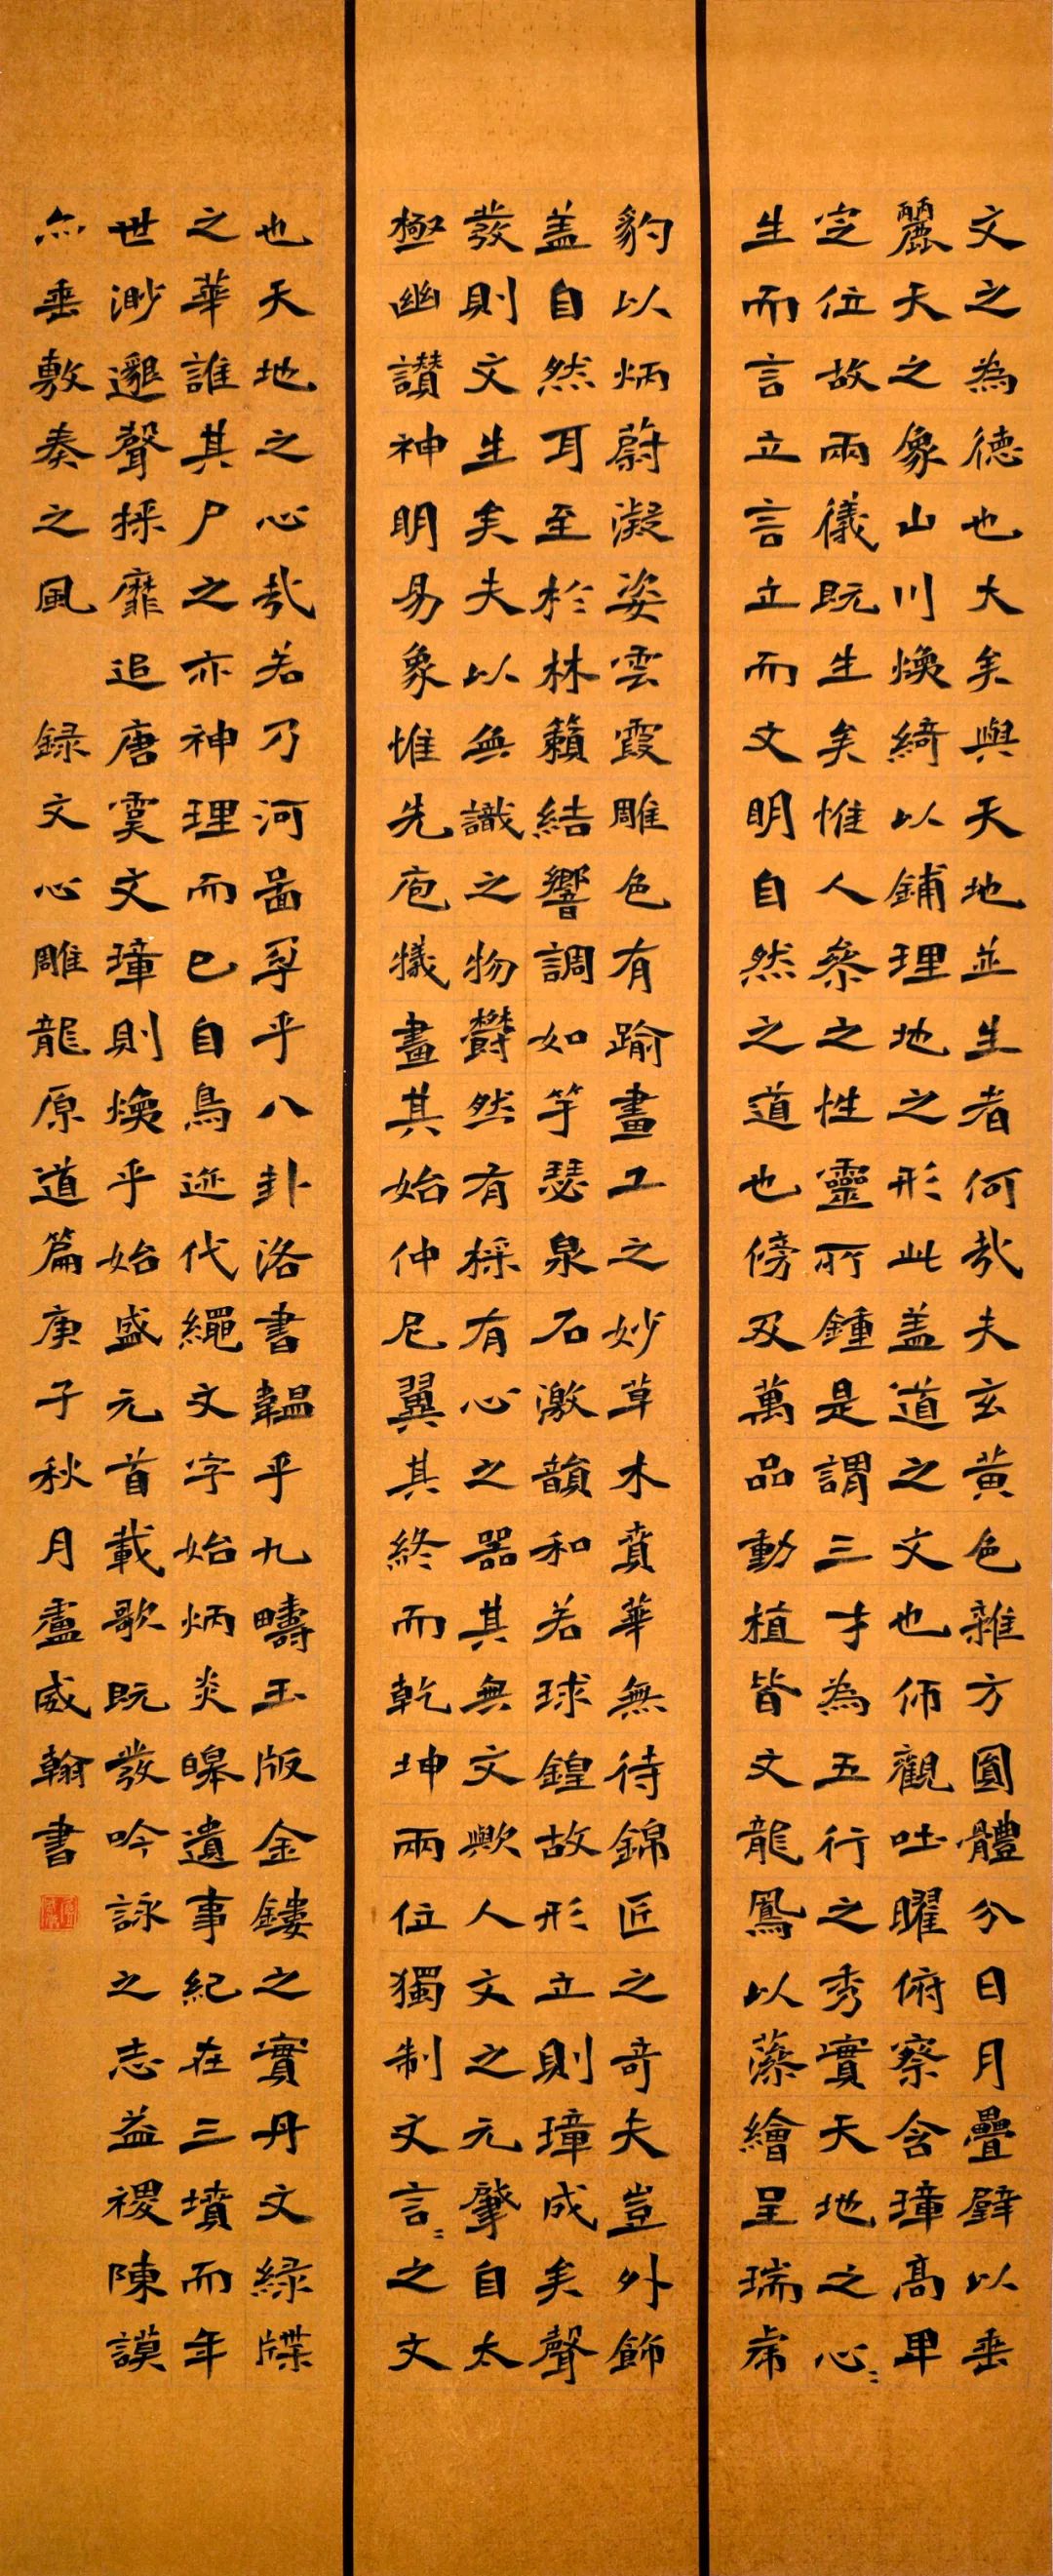 文之為德也大矣與天地並生者何哉夫玄黃色雜方圓體分日月疊璧以垂
麗天之象山川煥綺以鋪理地之形此盖道之文也仰觀吐曜俯察含璋高卑
定位故兩儀既生矣惟人參之性靈所鍾是謂三才為五行之秀實天地之心〻
生而言立言立而文明自然之道也傍及萬品動植皆文龍鳳以藻繪呈瑞虎
豹以炳蔚凝姿雲霞雕色有踰畫工之妙草木賁華無待錦匠之奇夫豈外飾
盖自然耳至於林籟結響調如竽瑟泉石激韻和若球鍠故形立則璋成矣聲
發則文生矣夫以無識之物欝然有採有心之器其無文歟人文之元肇自太
極幽讃神明易象惟先庖犧畫其始仲尼翼其終而乾坤兩位獨制文言〻之文
也天地之心哉若乃河啚孕乎八卦洛書韞乎九疇玉版金鏤之實丹文緑牒
之華誰其尸之亦神理而已自鳥迹代繩文字始炳炎皞遺事紀在三墳而年
世渺邈聲採靡追唐虞文璋則煥乎始盛元首載歌既發吟詠之志益稷陳謨
亦垂敷奏之風 録文心雕龍原道篇庚子秋月盧威翰書